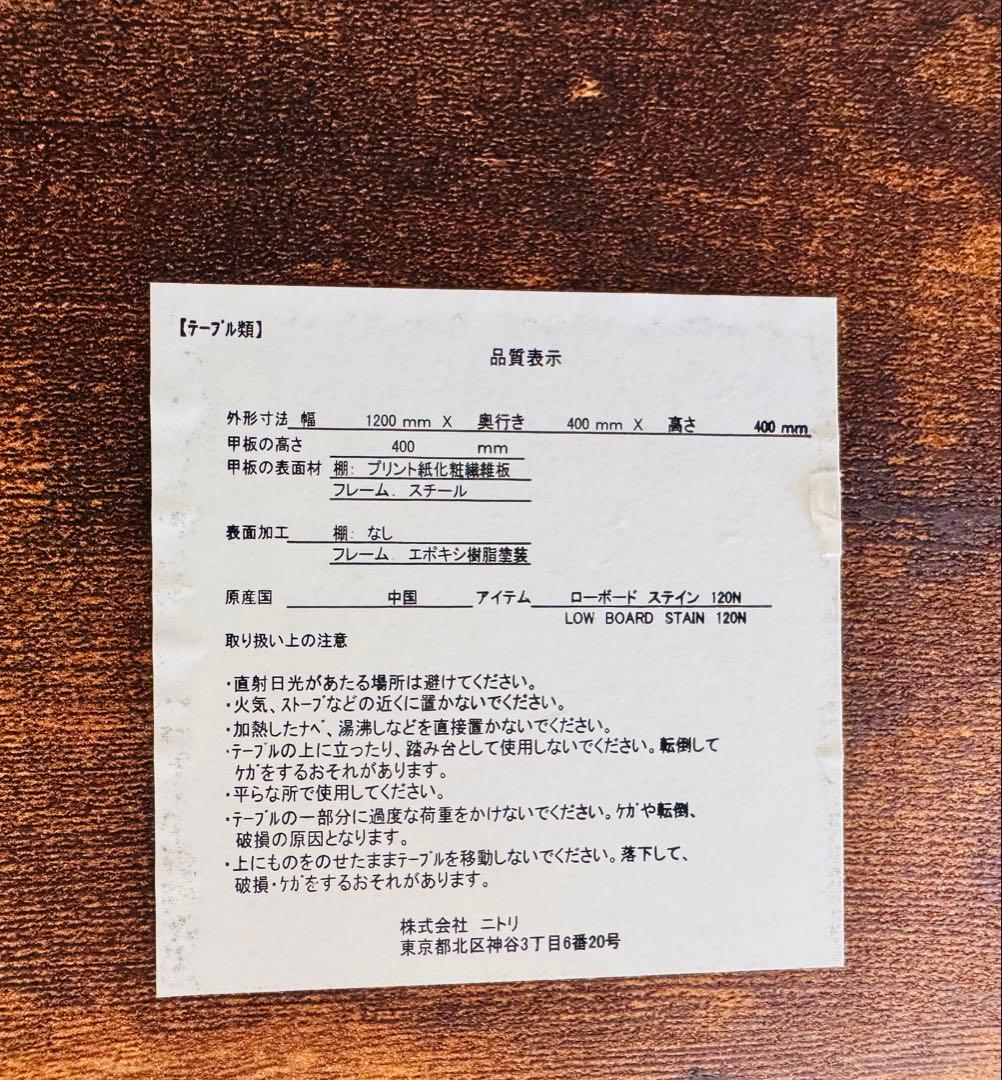 【ﾃｰﾌﾞﾙ類】
品質表示
外形寸法 幅 1200 mm X 奥行き 400 mm X 高さ 400 mm
甲板の高さ 400 mm
甲板の表面材 棚: プリント紙化粧繊維板
フレーム. スチール
表面加工 棚: なし
フレーム. エポキシ樹脂塗装
原産国 中国 アイテム ローボード ステイン 120N
LOW BOARD STAIN 120N
取り扱い上の注意
・直射日光があたる場所は避けてください。
・火気、ｽﾄｰﾌﾞなどの近くに置かないでください。
・加熱したﾅﾍﾞ、湯沸しなどを直接置かないでください。
・ﾃｰﾌﾞﾙの上に立ったり、踏み台として使用しないでください。転倒して
ｹｶﾞをするおそれがあります。
・平らな所で使用してください。
・ﾃｰﾌﾞﾙの一部分に過度な荷重をかけないでください。ｹｶﾞや転倒、
破損の原因となります。
・上にものをのせたままﾃｰﾌﾞﾙを移動しないでください。落下して、
破損・ｹｶﾞをするおそれがあります。
株式会社 ニトリ
東京都北区神谷3丁目6番20号